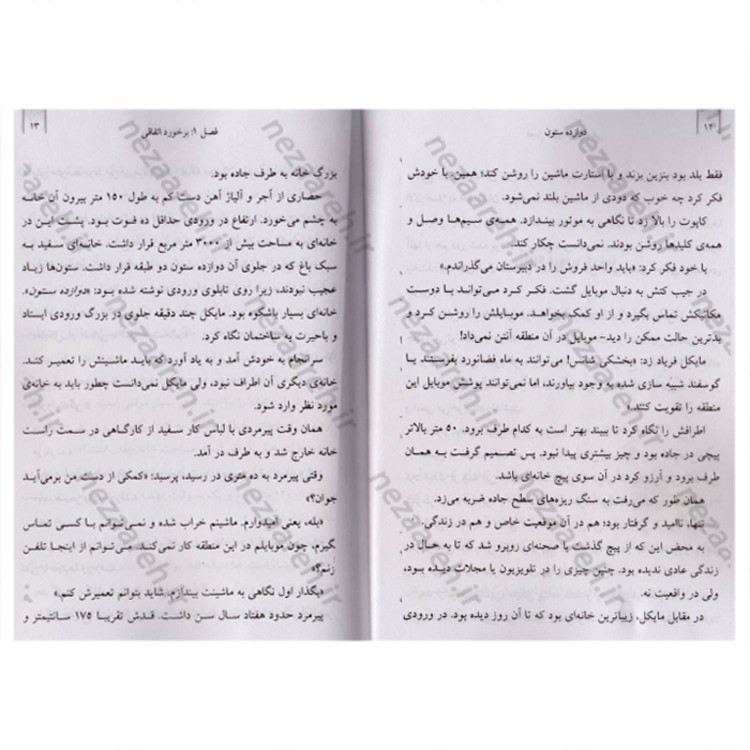 ۱۲
دوازده ستون
فقط بلد بود بنزین بزند و با استارت ماشین را روشن کند؛ همین. با خودش
فکر کرد چه خوب که دودی از ماشین بلند نمی‌شود.
کاپوت را بالا زد تا نگاهی به موتور بیندازد. همه‌ی سیم‌ها وصل و
همه‌ی کلیدها روشن بودند. نمی‌دانست چکار کند.
با خود فکر کرد: «باید واحد فروش را در دبیرستان می‌گذراندم.»
در جیب کتش به دنبال موبایل گشت. فکر کرد می‌تواند با دوست
مکانیکش تماس بگیرد و از او کمک بخواهد. موبایلش را روشن کرد و
بدترین حالت ممکن را دید- موبایل در آن منطقه آنتن نمی‌داد!
مایکل فریاد زد: «بخشکی شانس! می‌توانند به ماه فضانورد بفرستند یا
گوسفند شبیه سازی شده به وجود بیاورند، اما نمی‌توانند پوشش موبایل این
منطقه را تقویت کنند.»
اطرافش را نگاه کرد تا ببیند بهتر است به کدام طرف برود. ۵۰ متر بالاتر
پیچی در جاده بود و چیز بیشتری پیدا نبود. پس تصمیم گرفت به همان
طرف برود و آرزو کرد در آن سوی پیچ خانه‌ای باشد.
همان طور که می‌رفت به سنگ ریزه‌های سطح جاده ضربه می‌زد.
تنها، ناامید و گرفتار بود؛ هم در آن موقعیت خاص و هم در زندگی.
به محض این که از پیچ گذشت با صحنه‌ای روبرو شد که تا به حال در
زندگی عادی ندیده بود. چنین چیزی را در تلویزیون یا مجلات دیده بود،
ولی در واقعیت نه.
در مقابل مایکل، زیباترین خانه‌ای بود که تا آن روز دیده بود. در ورودی
فصل ۱: برخورد اتفاقی
۱۳
بزرگ خانه به طرف جاده بود.
حصاری از آجر و آلیاژ آهن دست کم به طول ۱۵۰ متر بیرون آن خانه
به چشم می‌خورد. ارتفاع در ورودی حداقل ده فوت بود. پشت این در
خانه‌ای به مساحت بیش از ۳۰۰۰ متر مربع قرار داشت. خانه‌ای سفید به
سبک باغ که در جلوی آن دوازده ستون دو طبقه قرار داشت. ستون‌ها زیاد
عجیب نبودند، زیرا روی تابلوی ورودی نوشته شده بود: «دوازده ستون».
خانه‌ای بسیار باشکوه بود. مایکل چند دقیقه جلوی در بزرگ ورودی ایستاد
و باحیرت به ساختمان نگاه کرد.
سرانجام به خودش آمد و به یاد آورد که باید ماشینش را تعمیر کند.
خانه‌ی دیگری آن اطراف نبود، ولی مایکل نمی‌دانست چطور باید به خانه‌ی
مورد نظر وارد شود.
همان وقت پیرمردی با لباس کار سفید از کارگاهی در سمت راست
خانه خارج شد و به طرف در آمد.
وقتی پیرمرد به ده متری در رسید، پرسید: «کمکی از دست من برمی‌آید
جوان؟»
«بله، یعنی امیدوارم. ماشینم خراب شده و نمی‌توانم با کسی تماس
بگیرم، چون موبایلم در این منطقه کار نمی‌کند. می‌توانم از اینجا تلفن
بزنم؟»
«بگذار اول نگاهی به ماشینت بیندازم. شاید بتوانم تعمیرش کنم.»
پیرمرد حدود هفتاد سال سن داشت. قدش تقریبا ۱۷۵ سانتیمتر و
nezaareh.ir